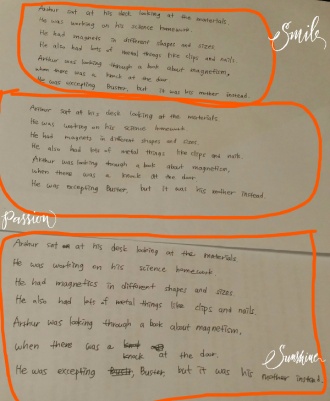 Arthur sat at his desk looking at the materials
He was working on his science homework.
He had magnets in different shapes and sizes
He also had lots of metal things like clips and nails.
Arthur was looking through a book about magnetism,
when there was a knock at the door
He was excepting Buster, but it was his mother instead.
Smile
Arthur sat at his desk looking at the materials.
He was working on his science homework
He had magnets in different shapes and sizes.
He also had lots of metal things like clips and nails.
Arthur was looking through a book about magnetism,
when there was a knock at the door.
He was excepting Buster, but it was his mother instead.
Passion
Arthur sat at his desk looking at the materials
He was working on his science homework
He had magnetics in different shapes and sizes
He also had lots of metal things like clips and nails.
Arthur was looking through a book about magnetism,
when there was a knock at the door.
He was excepting Buster, but it was his mother instead.
Sunshine